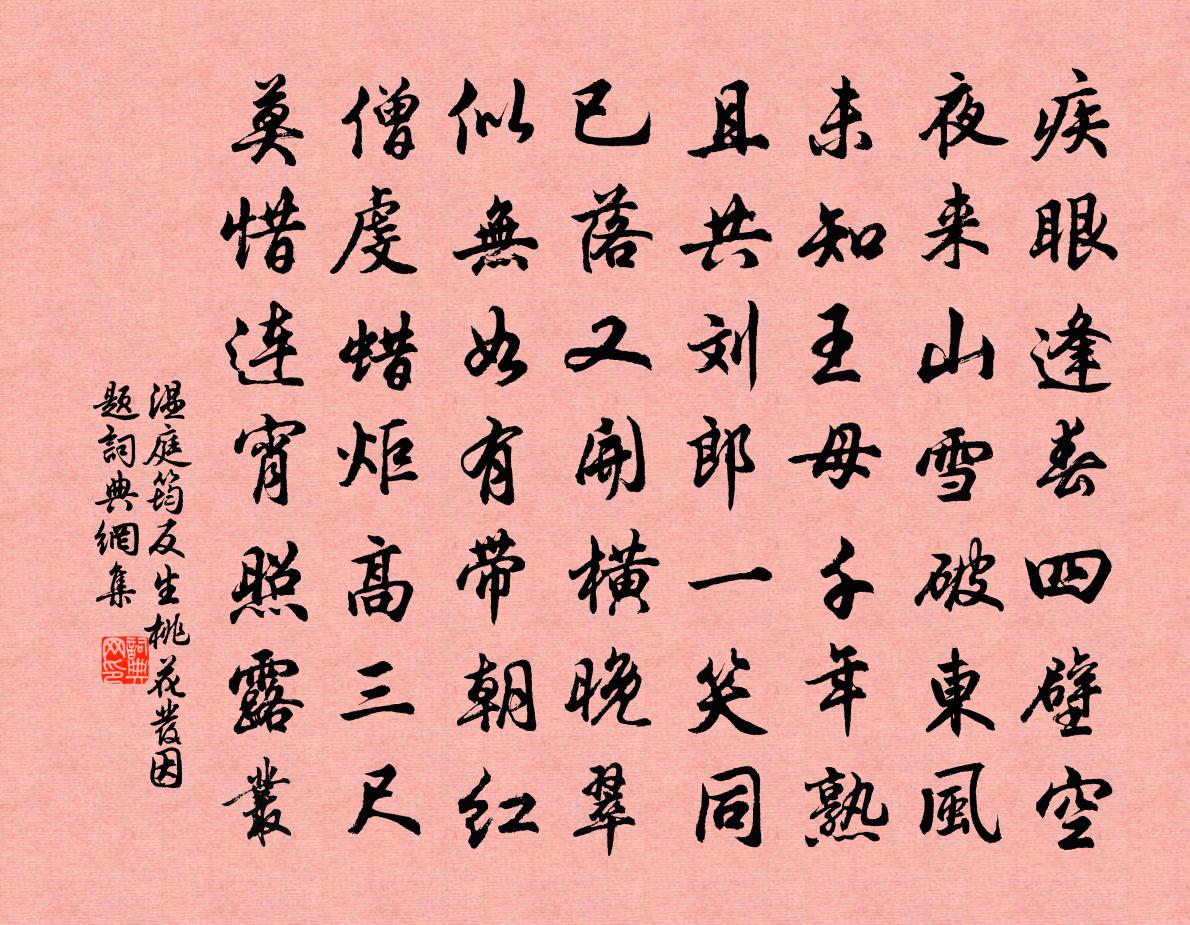 疾眼逢春四壁空
夜来山雪破東風
未知王母千年熟
且共刘郎一笑同
已落又開橫晚翠
似無如有帶朝红
僧虔蜡炬高三尺
莫惜连宵照露叢
温庭筠反生桃花發因
题詞典網集
詞典网印